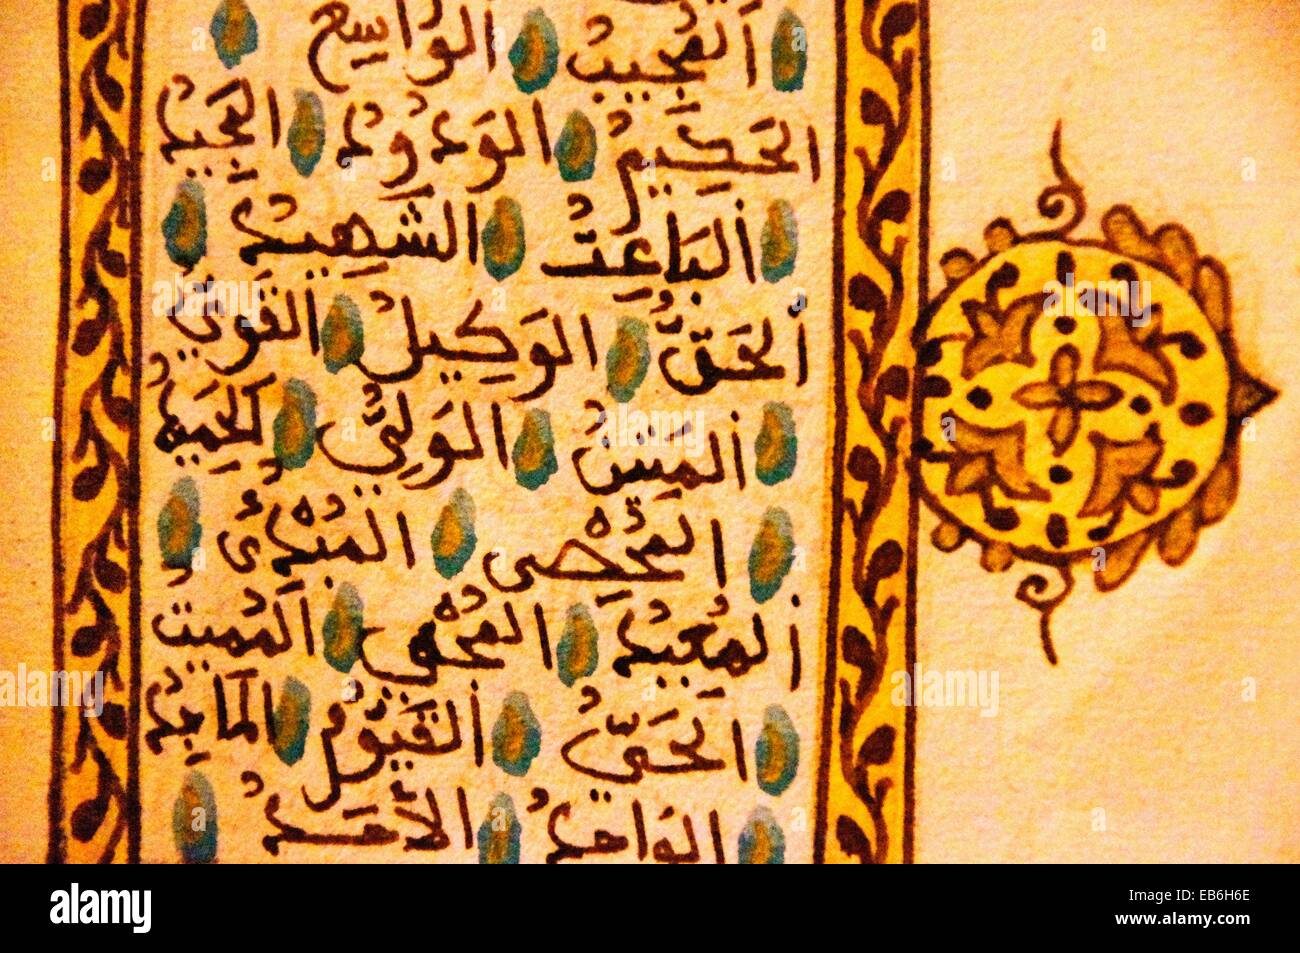 اَلْمُجِيبُ الْوَاسِعُ
الْحَكِيمُ الْوَدُودُ الْمَجِيدُ
اَلْبَاعِثُ الشَّهِيدُ
اَلْحَقُّ الْوَكِيلُ الْقَوِيُّ
اَلْمَتِينُ الْوَلِيُّ الْحَمِيدُ
الْمُحْصِى الْمُبْدِئُ
اَلْمُعِيدُ الْمُحْيِى الْمُمِيتُ
الْحَيُّ الْقَيُّومُ الْمَاجِدُ
الْوَاحِدُ الْأَحَدُ
alamy
Image ID: EB6H6E
www.alamy.com